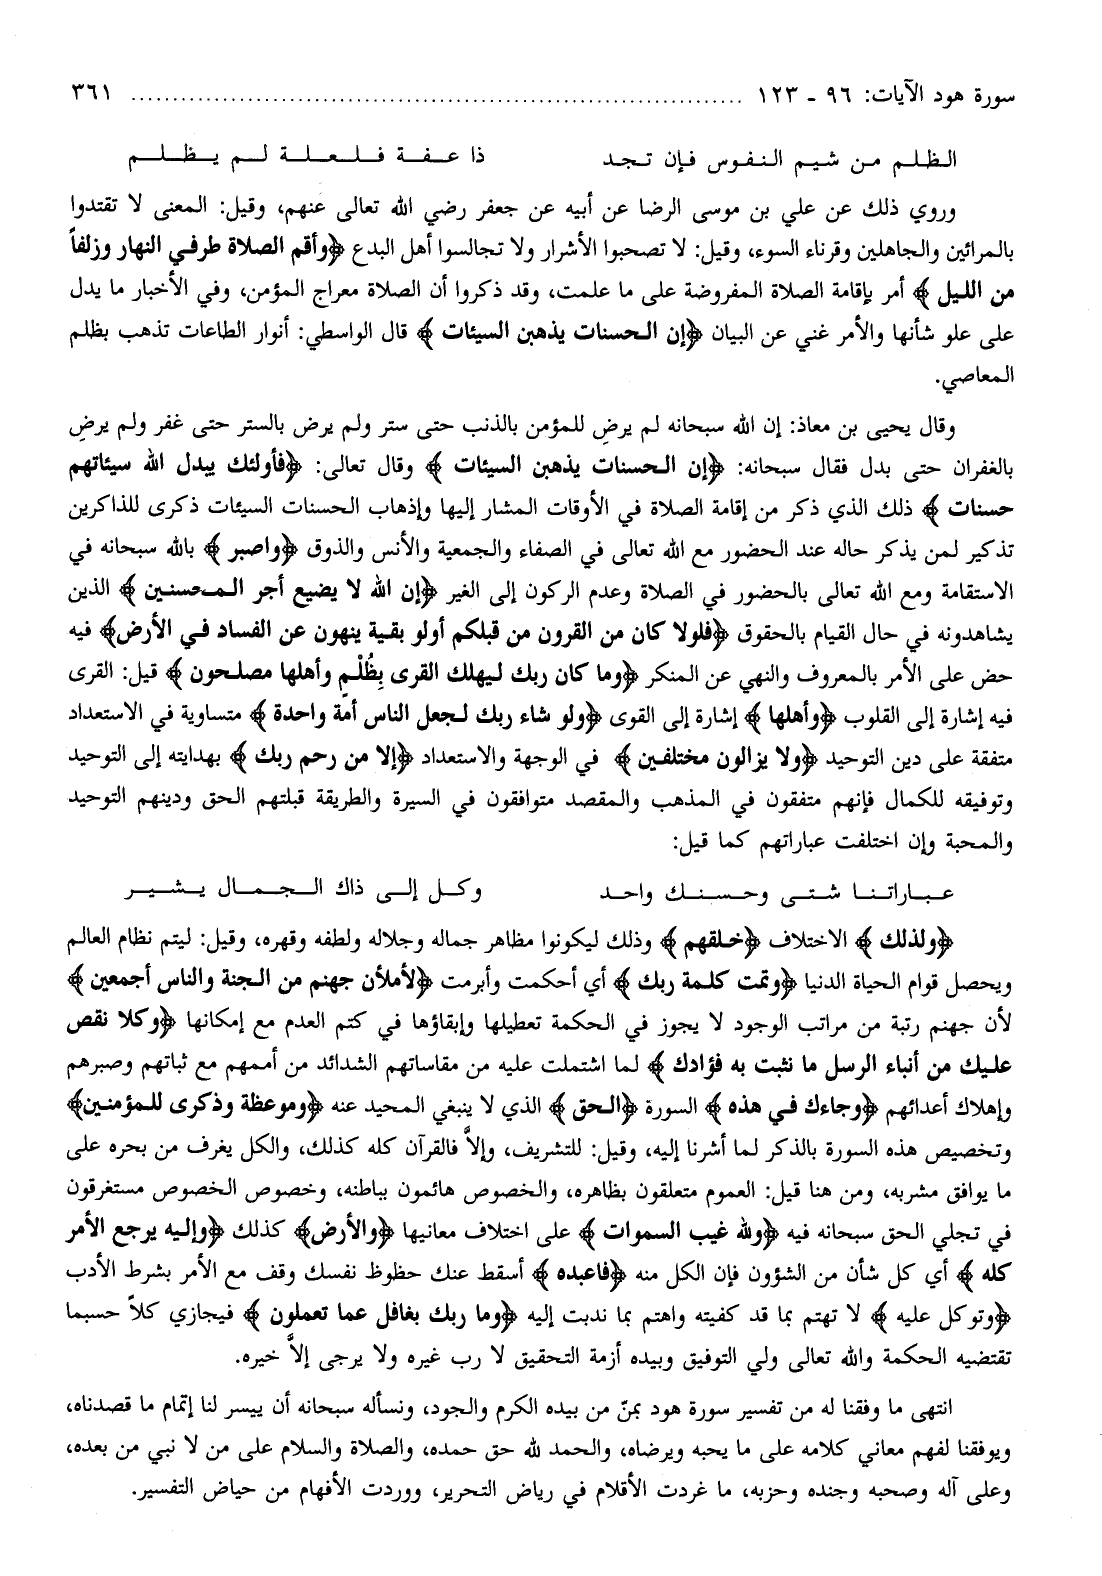 سورة هود الآيات: ٩٦ - ١٢٣ ........................................................................ ٣٦١
الظلم من شيم النفوس فإن تجد ذا عفة فلعلة لم يظلم
وروي ذلك عن علي بن موسى الرضا عن أبيه عن جعفر رضي الله تعالى عنهم، وقيل: المعنى لا تقتدوا
بالمرائين والجاهلين وقرناء السوء، وقيل: لا تصحبوا الأشرار ولا تجالسوا أهل البدع ﴿وأقم الصلاة طرفي النهار وزلفاً
من الليل﴾ أمر بإقامة الصلاة المفروضة على ما علمت، وقد ذكروا أن الصلاة معراج المؤمن، وفي الأخبار ما يدل
على علو شأنها والأمر غني عن البيان ﴿إن الحسنات يذهبن السيئات﴾ قال الواسطي: أنوار الطاعات تذهب بظلم
المعاصي.
وقال يحيى بن معاذ: إن الله سبحانه لم يرضِ للمؤمن بالذنب حتى ستر ولم يرض بالستر حتى غفر ولم يرضِ
بالغفران حتى بدل فقال سبحانه: ﴿إن الحسنات يذهبن السيئات﴾ وقال تعالى: ﴿فأولئك يبدل الله سيئاتهم
حسنات﴾ ذلك الذي ذكر من إقامة الصلاة في الأوقات المشار إليها وإذهاب الحسنات السيئات ذكرى للذاكرين
تذكير لمن يذكر حاله عند الحضور مع الله تعالى في الصفاء والجمعية والأنس والذوق ﴿واصبر﴾ بالله سبحانه في
الاستقامة ومع الله تعالى بالحضور في الصلاة وعدم الركون إلى الغير ﴿إن الله لا يضيع أجر المحسنين﴾ الذين
يشاهدونه في حال القيام بالحقوق ﴿فلولا كان من القرون من قبلكم أولو بقية ينهون عن الفساد في الأرض﴾ فيه
حض على الأمر بالمعروف والنهي عن المنكر ﴿وما كان ربك ليهلك القرى بِظُلْمٍ وأهلها مصلحون﴾ قيل: القرى
فيه إشارة إلى القلوب ﴿وأهلها﴾ إشارة إلى القوى ﴿ولو شاء ربك لجعل الناس أمة واحدة﴾ متساوية في الاستعداد
متفقة على دين التوحيد ﴿ولا يزالون مختلفين﴾ في الوجهة والاستعداد ﴿إلا من رحم ربك﴾ بهدايته إلى التوحيد
وتوفيقه للكمال فإنهم متفقون في المذهب والمقصد متوافقون في السيرة والطريقة قبلتهم الحق ودينهم التوحيد
والمحبة وإن اختلفت عباراتهم كما قيل:
عباراتنا شتى وحسنك واحد وكل إلى ذاك الجمال يشير
﴿ولذلك﴾ الاختلاف ﴿خلقهم﴾ وذلك ليكونوا مظاهر جماله وجلاله ولطفه وقهره، وقيل: ليتم نظام العالم
ويحصل قوام الحياة الدنيا ﴿وتمت كلمة ربك﴾ أي أحكمت وأبرمت ﴿لأملأن جهنم من الجنة والناس أجمعين﴾
لأن جهنم رتبة من مراتب الوجود لا يجوز في الحكمة تعطيلها وإبقاؤها في كتم العدم مع إمكانها ﴿وكلا نقص
عليك من أنباء الرسل ما نثبت به فؤادك﴾ لما اشتملت عليه من مقاساتهم الشدائد من أممهم مع ثباتهم وصبرهم
وإهلاك أعدائهم ﴿وجاءك في هذه﴾ السورة ﴿الحق﴾ الذي لا ينبغي المحيد عنه ﴿وموعظة وذكرى للمؤمنين﴾
وتخصيص هذه السورة بالذكر لما أشرنا إليه، وقيل: للتشريف، وإلاَّ فالقرآن كله كذلك، والكل يغرف من بحره على
ما يوافق مشربه، ومن هنا قيل: العموم متعلقون بظاهره، والخصوص هائمون بباطنه، وخصوص الخصوص مستغرقون
في تجلي الحق سبحانه فيه ﴿ولله غيب السموات﴾ على اختلاف معانيها ﴿والأرض﴾ كذلك ﴿وإليه يرجع الأمر
كله﴾ أي كل شأن من الشؤون فإن الكل منه ﴿فاعبده﴾ أسقط عنك حظوظ نفسك وقف مع الأمر بشرط الأدب
﴿وتوكل عليه﴾ لا تهتم بما قد كفيته واهتم بما ندبت إليه ﴿وما ربك بغافل عما تعملون﴾ فيجازي كلاً حسبما
تقتضيه الحكمة والله تعالى ولي التوفيق وبيده أزمة التحقيق لا رب غيره ولا يرجى إلاَّ خيره.
انتهى ما وفقنا له من تفسير سورة هود بمنّ من بيده الكرم والجود، ونسأله سبحانه أن ييسر لنا إتمام ما قصدناه،
ويوفقنا لفهم معاني كلامه على ما يحبه ويرضاه، والحمد لله حق حمده، والصلاة والسلام على من لا نبي من بعده،
وعلى آله وصحبه وجنده وحزبه، ما غردت الأقلام في رياض التحرير، ووردت الأفهام من حياض التفسير.